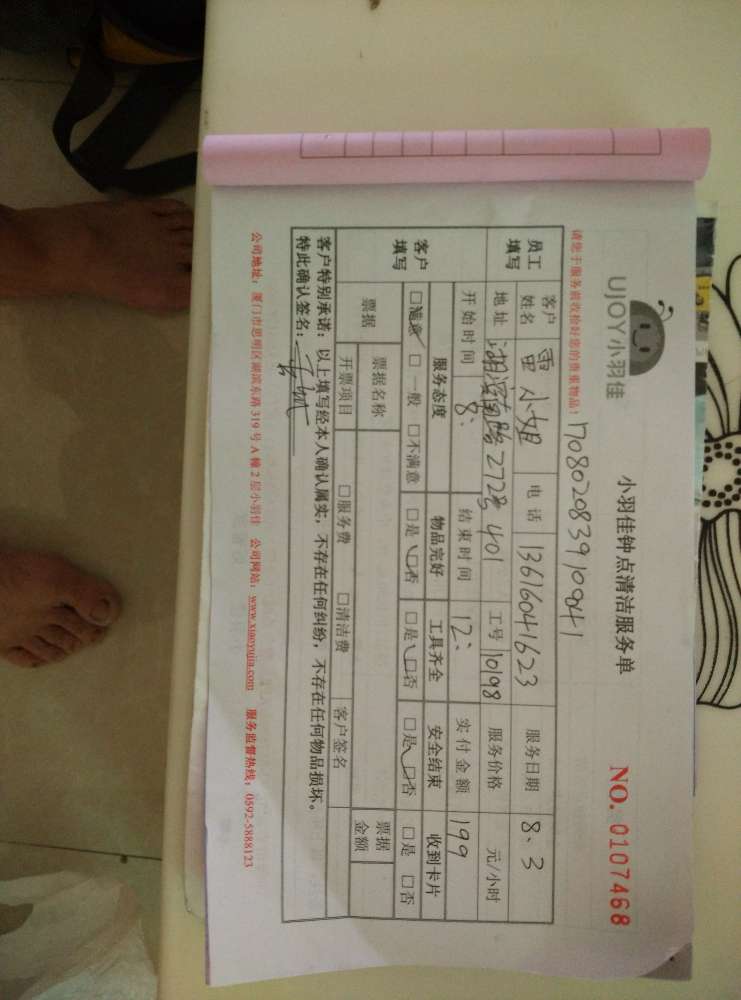 UJOY小羽佳
小羽佳钟点清洁服务单
NO. 0107468
请您于服务前收拾好您的贵重物品！
员工填写 客户姓名 雷小姐 电话 13616041623 服务日期 8、3
地址 湖滨南路272号401 工号 10198 服务价格 元/小时
开始时间 8： 结束时间 12： 实付金额 199
客户填写 服务态度 物品完好 工具齐全 安全结束 收到卡片
□满意 □一般 □不满意 □是 □否 □是 □否 □是 □否 □是 □否
票据 票据名称 票据金额
开票项目 □服务费 □清洁费 客户签名
客户特别承诺：以上填写经本人确认属实，不存在任何纠纷，不存在任何物品损坏。
特此确认签名：
公司地址：厦门市思明区湖滨东路319号A幢2层小羽佳 公司网站：www.xiaoyujia.com 服务监督热线：0592-5888123